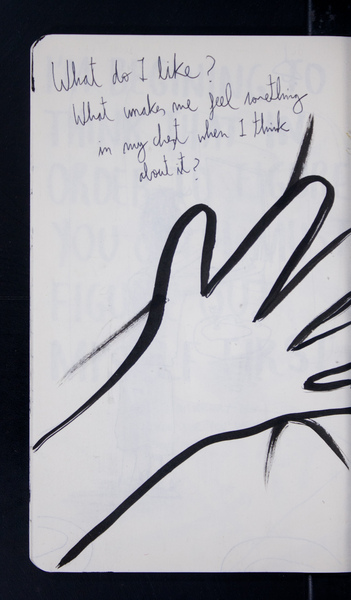 What do I like?
What makes me feel something
in my chest when I think
about it?